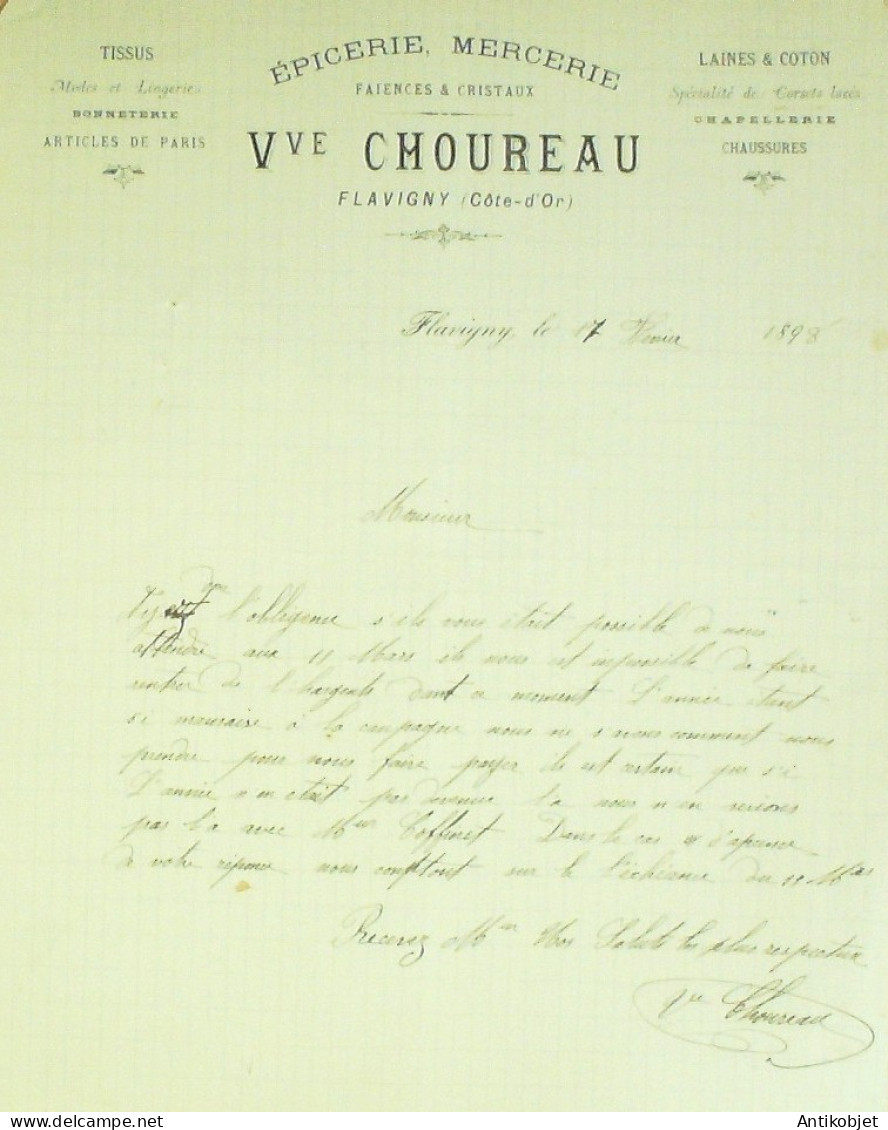 TISSUS
Modes et Lingeries
BONNETERIE
ARTICLES DE PARIS
ÉPICERIE, MERCERIE
FAIENCES & CRISTAUX
VVE CHOUREAU
FLAVIGNY (Côte-d'Or)
LAINES & COTON
Spécialité de Corsets lacés
CHAPELLERIE
CHAUSSURES
Flavigny, le 17 1898
Monsieur
l'obligence s'ile vous était possible de nous
attendre aux 11 Mars ile nous est impossible de faire
rentrer de l'hargents dant ce moment L'année étant
si mauvaise à la campagne nous ne savons comment nous
prendre pour nous faire payer ile est certain que si
L'année n'était pas nous n'en serions
pas la avec Mur Coffinet Dans le cas
de votre réponce nous comptont sur le l'échéance du 11 Mars
Recevez Mur Nos Saluts les plus respectueux
Vve Choureau
Visit antikobjet.fr
Antikobjet